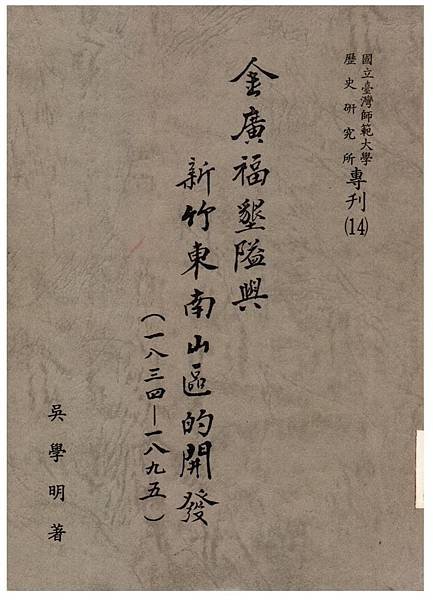 國立臺灣師範大學
歷史研究所
專刊(14)
金廣福墾隘與
新竹東南山區的開發
(一八三四—一八九五)
吳學明著